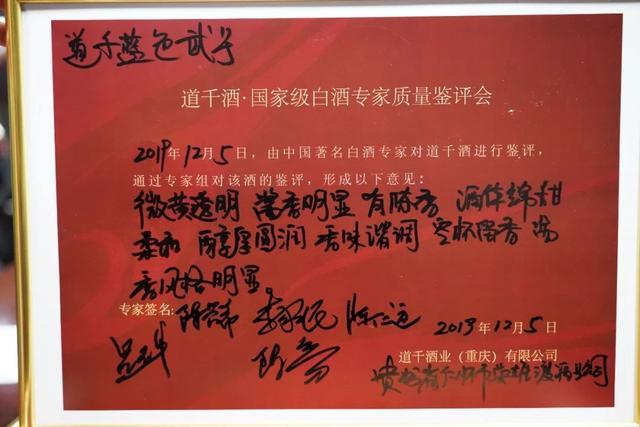 道千蓝色武号
道千酒·国家级白酒专家质量鉴评会
2019年12月5日，由中国著名白酒专家对道千酒进行鉴评，
通过专家组对该酒的鉴评，形成以下意见：
微黄透明 酱香明显 有陈香 酒体绵甜
柔和 醇厚圆润 香味谐调 空杯留香 酱
香风格明显。
专家签名：
2019年12月5日
道千酒业（重庆）有限公司
贵州省仁怀市